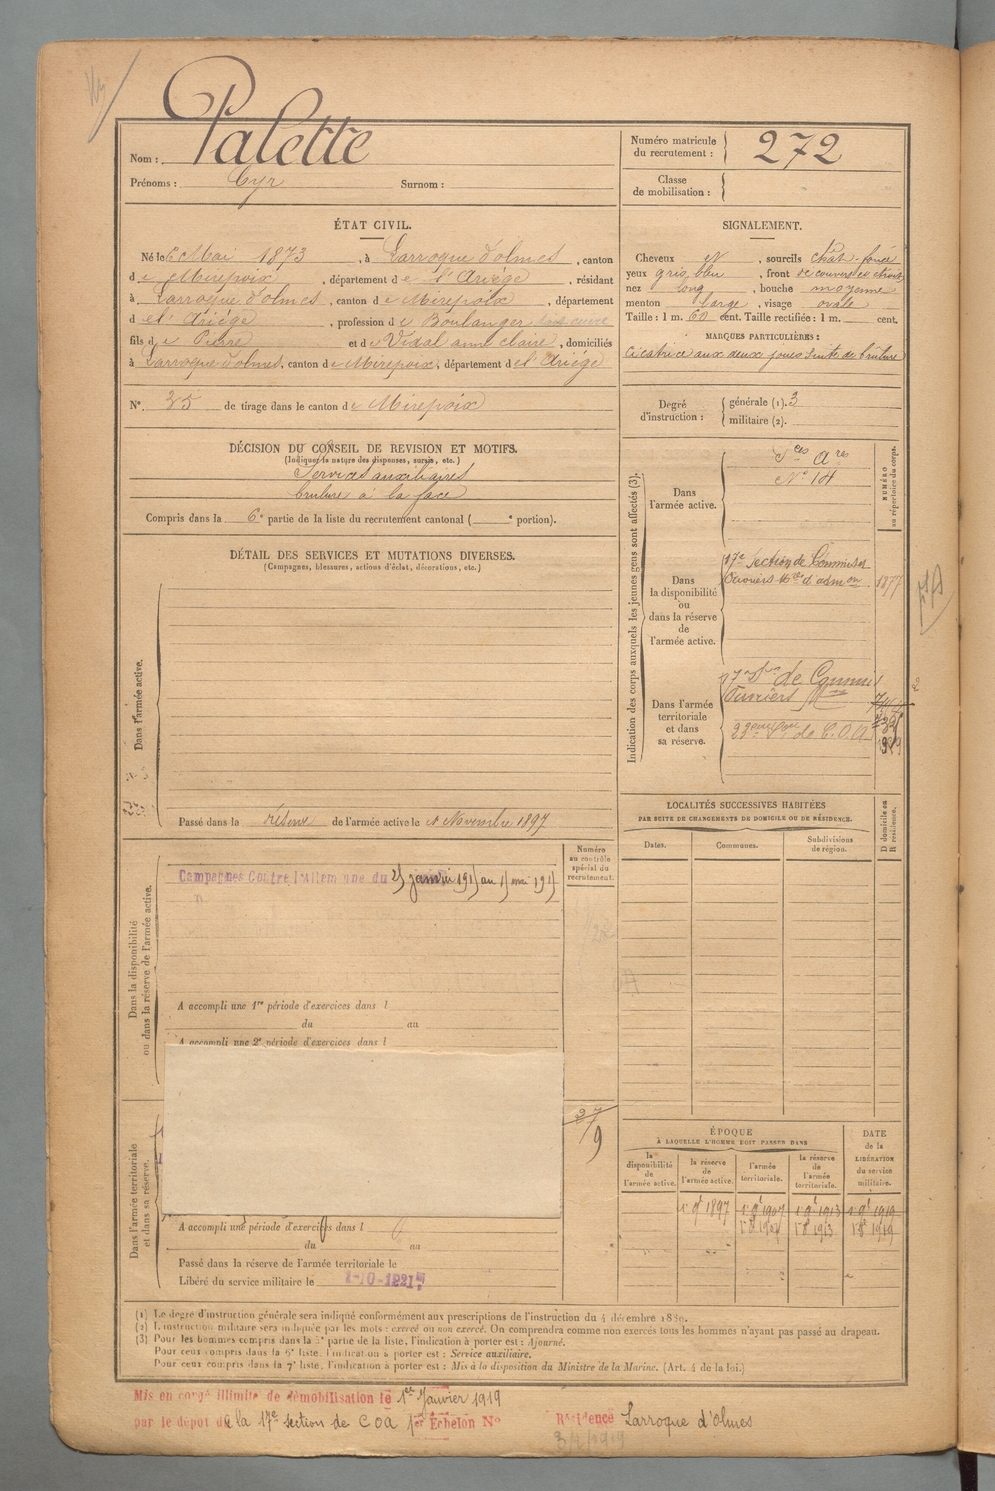 Palette
Nom :
Prénoms : Cyr Surnom :
Numéro matricule du recrutement : 272
Classe de mobilisation :
ÉTAT CIVIL.
Né le 6 Mai 1873, à Larroque d'olmes, canton
de Mirepoix, département de l'Ariége, résidant
à Larroque d'olmes, canton de Mirepoix, département
de l'Ariége, profession de Boulanger
fils de Pierre et de Vidal anne claire, domiciliés
à Larroque d'olmes, canton de Mirepoix, département de l'Ariége
N° 35 de tirage dans le canton de Mirepoix
DÉCISION DU CONSEIL DE REVISION ET MOTIFS.
(Indiquer la nature des dispenses, sursis, etc.)
Services auxiliaires
brulure à la face
Compris dans la 6e partie de la liste du recrutement cantonal ( e portion).
SIGNALEMENT.
Cheveux N, sourcils chât-foncé
yeux gris bleu, front découvert et étroit
nez long, bouche moyenne
menton large, visage ovale
Taille : 1 m. 60 cent. Taille rectifiée : 1 m. cent.
MARQUES PARTICULIÈRES :
Cicatrice aux deux joues suite de brûlure
Degré d'instruction : générale (1). 3
militaire (2).
Indication des corps auxquels les jeunes gens sont affectés (3).
NUMÉRO au répertoire du corps.
Dans l'armée active.
Sces Ares
N° 14
Dans la disponibilité ou dans la réserve de l'armée active.
17e Section de Commis et
Ouvriers Mres d'admon 1877
Dans l'armée territoriale et dans sa réserve.
17e Son de Commis
Ouvriers Mres
DÉTAIL DES SERVICES ET MUTATIONS DIVERSES.
(Campagnes, blessures, actions d'éclat, décorations, etc.)
Dans l'armée active.
Passé dans la réserve de l'armée active le 1 Novembre 1897
Numéro au contrôle spécial du recrutement.
Dans la disponibilité ou dans la réserve de l'armée active.
Campagnes Contre l'Allemagne du 25 janvier 1915 au 15 mai 1915
A accompli une 1re période d'exercices dans l
du au
A accompli une 2e période d'exercices dans l
Dans l'armée territoriale et dans sa réserve.
A accompli une période d'exercices dans l
du au
Passé dans la réserve de l'armée territoriale le
Libéré du service militaire le 1-10-1921
LOCALITÉS SUCCESSIVES HABITÉES
PAR SUITE DE CHANGEMENTS DE DOMICILE OU DE RÉSIDENCE.
D domicile ou R résidence.
Dates. Communes. Subdivisions de région.
ÉPOQUE
À LAQUELLE L'HOMME DOIT PASSER DANS
DATE de la LIBÉRATION du service militaire.
la disponibilité de l'armée active.
la réserve de l'armée active.
l'armée territoriale.
la réserve de l'armée territoriale.
1 9e 1897 1 9e 1907 1 9e 1913 1 9e 1919
1 8e 1907 1 8e 1913 1 8e 1919
(1) Le degré d'instruction générale sera indiqué conformément aux prescriptions de l'instruction du 4 décembre 1889.
(2) L'instruction militaire sera indiquée par les mots : exercé ou non exercé. On comprendra comme non exercés tous les hommes n'ayant pas passé au drapeau.
(3) Pour les hommes compris dans la 5e partie de la liste, l'indication à porter est : Ajourné.
Pour ceux compris dans la 6e liste, l'indication à porter est : Service auxiliaire.
Pour ceux compris dans la 7e liste, l'indication à porter est : Mis à la disposition du Ministre de la Marine. (Art. 4 de la loi.)
Mis en congé illimité de démobilisation le 1er Janvier 1919
par le dépôt de la 17e section de COA 1er Échelon N° Résidence Larroque d'Olmes